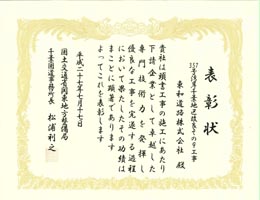 表彰状
357号湾岸千葉地区改良その9工事
東和道路株式会社 殿
貴社は頭書工事の施工にあたり
下請企業として卓越した
専門技術・能力を発揮し
優良な工事を完遂する過程
において果たしたその功績は
まことに顕著であります
よってこれを表彰します
平成二十七年七月十七日
国土交通省関東地方整備局
千葉国道事務所長 松浦利之